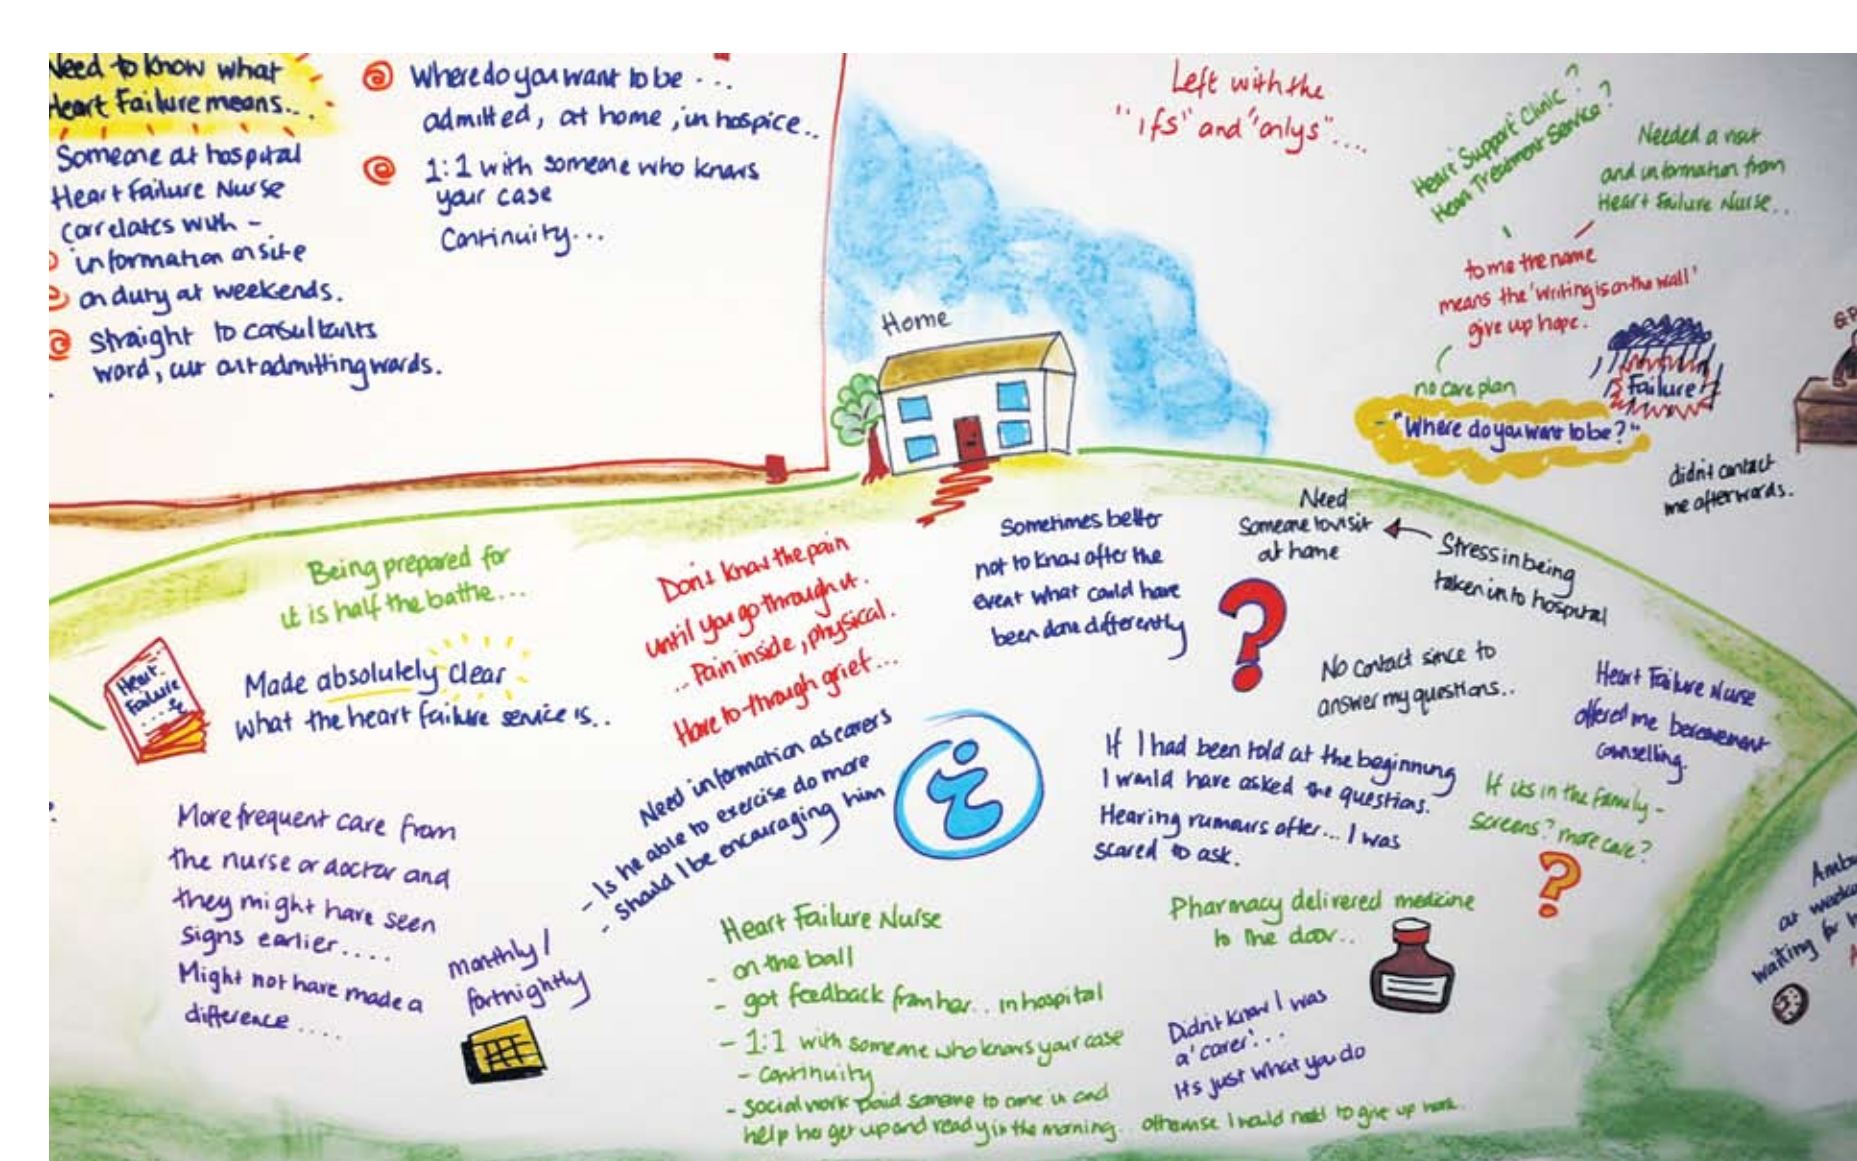 Need to know what
Heart Failure means...
Someone at hospital
Heart Failure Nurse
correlates with -
information on site
on duty at weekends.
straight to consultants
word, cut out admitting wards.
Where do you want to be ...
admitted, at home, in hospice..
1:1 with someone who knows
your case
Continuity...
Left with the
"ifs" and "onlys"....
Heart Support Clinic?
Heart Treatment Service?
Needed a visit
and information from
Heart Failure Nurse..
to me the name
means the 'writing is on the wall'
give up hope.
Failure
no care plan
- "Where do you want to be?"
GP
didn't contact
me afterwards.
Home
Being prepared for
it is half the battle...
Heart
Failure
....
Made absolutely clear
what the heart failure service is..
Don't know the pain
until you go through it.
... Pain inside, physical.
Have to-through grief...
Sometimes better
not to know after the
event what could have
been done differently
Need
someone to visit
at home
Stress in being
taken in to hospital
No contact since to
answer my questions..
Heart Failure Nurse
offered me bereavement
counselling.
Need information as carers
- Is he able to exercise do more
- should I be encouraging him
i
If I had been told at the beginning
I would have asked the questions.
Hearing rumours after... I was
scared to ask.
If its in the family -
screens? more care?
?
?
More frequent care from
the nurse or doctor and
they might have seen
signs earlier.....
Might not have made a
difference.....
monthly/
fortnightly
Heart Failure Nurse
- on the ball
- got feedback from her.. in hospital
- 1:1 with someone who knows your case
- continuity
- social work paid someone to come in and
help her get up and ready in the morning.. otherwise I would need to give up work.
Pharmacy delivered medicine
to the door..
Didn't know I was
a 'carer'...
It's just what you do
Ambu
at
waiting for